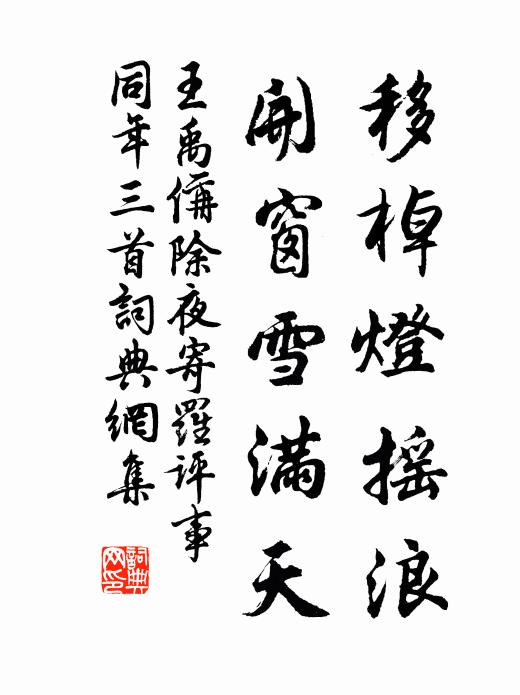 移棹燈摇浪
開窗雪满天
王禹偁除夜寄羅評事
同年三首詞典網集
詞典
网印